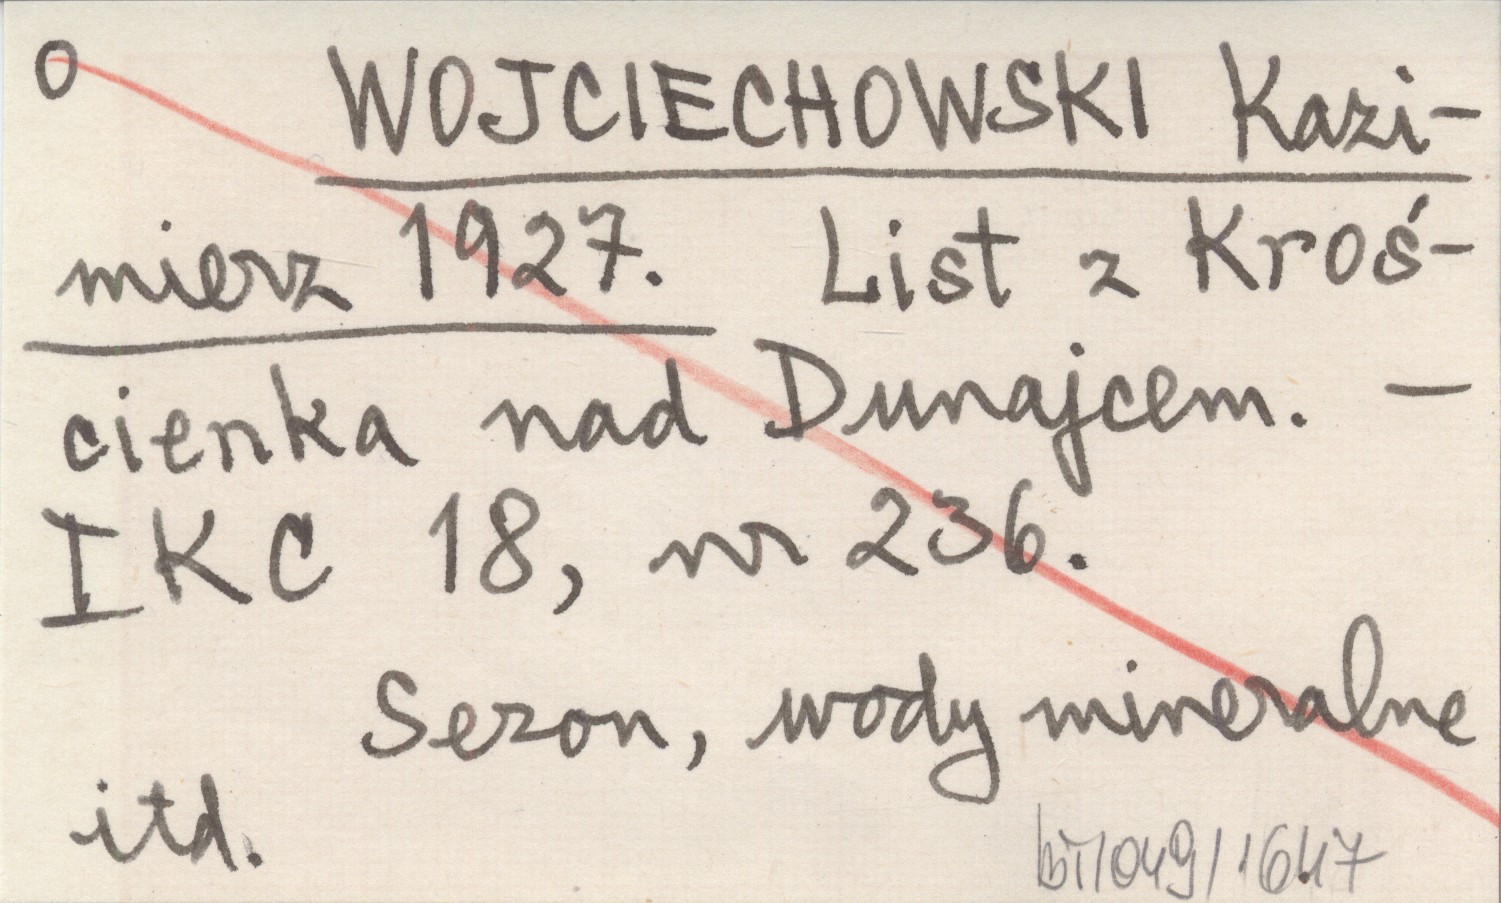 O WOJCIECHOWSKI Kazi-
mierz 1927. List z Kroś-
cienka nad Dunajcem. —
IKC 18, nr 236.
Sezon, wody mineralne
itd.
bi/049/1647